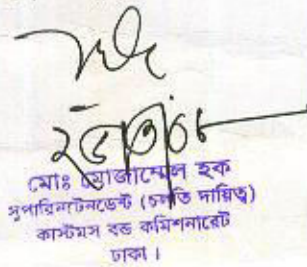 মোঃ মোজাম্মেল হক
সুপারিনটেনডেন্ট (চলতি দায়িত্ব)
কাস্টমস বন্ড কমিশনারেট
ঢাকা।